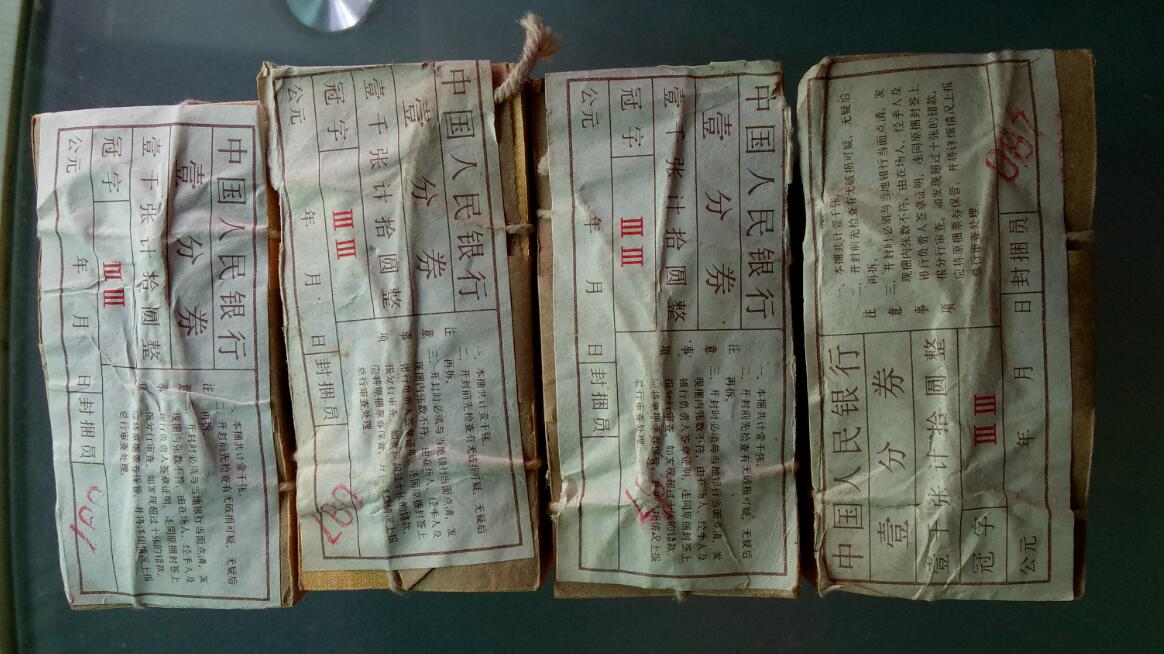 中国人民银行
壹分券
壹千张计拾圆整
冠字
ⅢⅢ
公元 年 月 日封捆员
注意事项
一、本捆共计壹千张。
二、开封前先检查有无破损可疑，无疑后再拆。
三、开封时必须与当地银行当面点清，发现捆内张数不符，由在场人、经手人及银行负责人签章证明，连同原捆封签上报分行审查。如发现超过十张的错款，应将原捆票券保管，并将详细情况上报总行审查处理。
中国人民银行
壹分券
壹千张计拾圆整
冠字
ⅢⅢ
公元 年 月 日封捆员
087
注意事项
一、本捆共计壹千张。
二、开封前先检查有无破损可疑，无疑后
再拆。
三、开封时必须与当地银行当面点清，发
现捆内张数不符，由在场人、经手人及
银行负责人签章证明，连同原捆封签上
报分行审查。如发现超过十张的错款，
应将原捆票券保管，并将详细情况上报
总行审查处理。
中国人民银行
壹分券
壹千张计拾圆整
冠字
ⅢⅢ
公元 年 月 日封捆员
注意事项
一、本捆共计壹千张。
二、开封前先检查有无破损可疑，无疑后
再拆。
三、开封时必须与当地银行当面点清，发
现捆内张数不符，由在场人、经手人及
银行负责人签章证明，连同原捆封签上
报分行审查。如发现超过十张的错款，
应将原捆票券保管，并将详细情况上报
总行审查处理。
中国人民银行
壹分券
壹千张计拾圆整
冠字
ⅢⅢ
公元 年 月 日封捆员
087
注意事项
一、本捆共计壹千张。
二、开封前先检查有无破损可疑，无疑后
再拆。
三、开封时必须与当地银行当面点清，发
现捆内张数不符，由在场人、经手人及
银行负责人签章证明，连同原捆封签上
报分行审查。如发现超过十张的错款，
应将原捆票券保管，并将详细情况上报
总行审查处理。